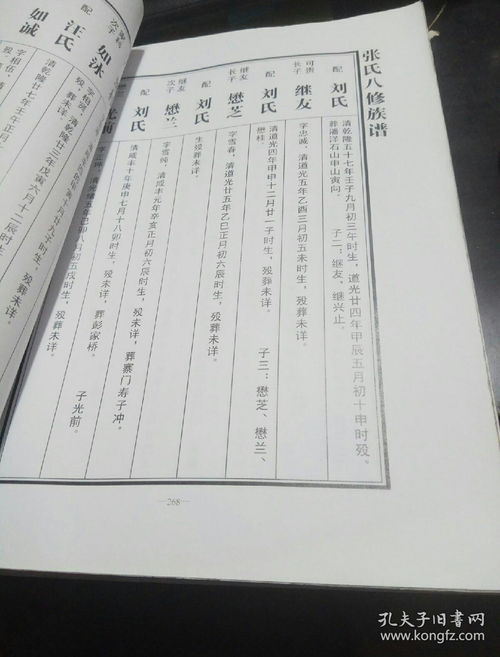 张氏八修族谱
配 刘氏
清乾隆五十七年壬子九月初三午时生，道光廿四年甲辰五月初十申时殁。
葬潘洋石山申山寅向。 子二：继友、继兴止。
可贵
长子 继友
字忠诚，清道光五年乙酉三月初五未时生，殁葬未详。
配 刘氏
清道光四年甲申十二月廿一子时生，殁葬未详。 子三：懋芝、懋兰、
懋桂。
继友
长子 懋芝
字雪春，清道光廿五年乙巳正月初六辰时生，殁葬未详。
配 刘氏
生殁葬未详。
继友
次子 懋兰
字雪纯，清咸丰元年辛亥正月初六辰时生，殁葬未详，葬寨门寿子冲。
配 刘氏
清咸丰十年庚申七月十八卯时生，殁未详，葬彭家桥。 子光前。
光前
五年己卯八月初五戌时生，殁葬未详。
次子 如沐
字相贤，清乾隆廿三年戊寅六月十二辰时生
殁，葬未详。
配 汪氏
清乾隆廿七年壬午正月
如诚
字相伍，清
—268—
孔夫子旧书网
www.kongfz.com